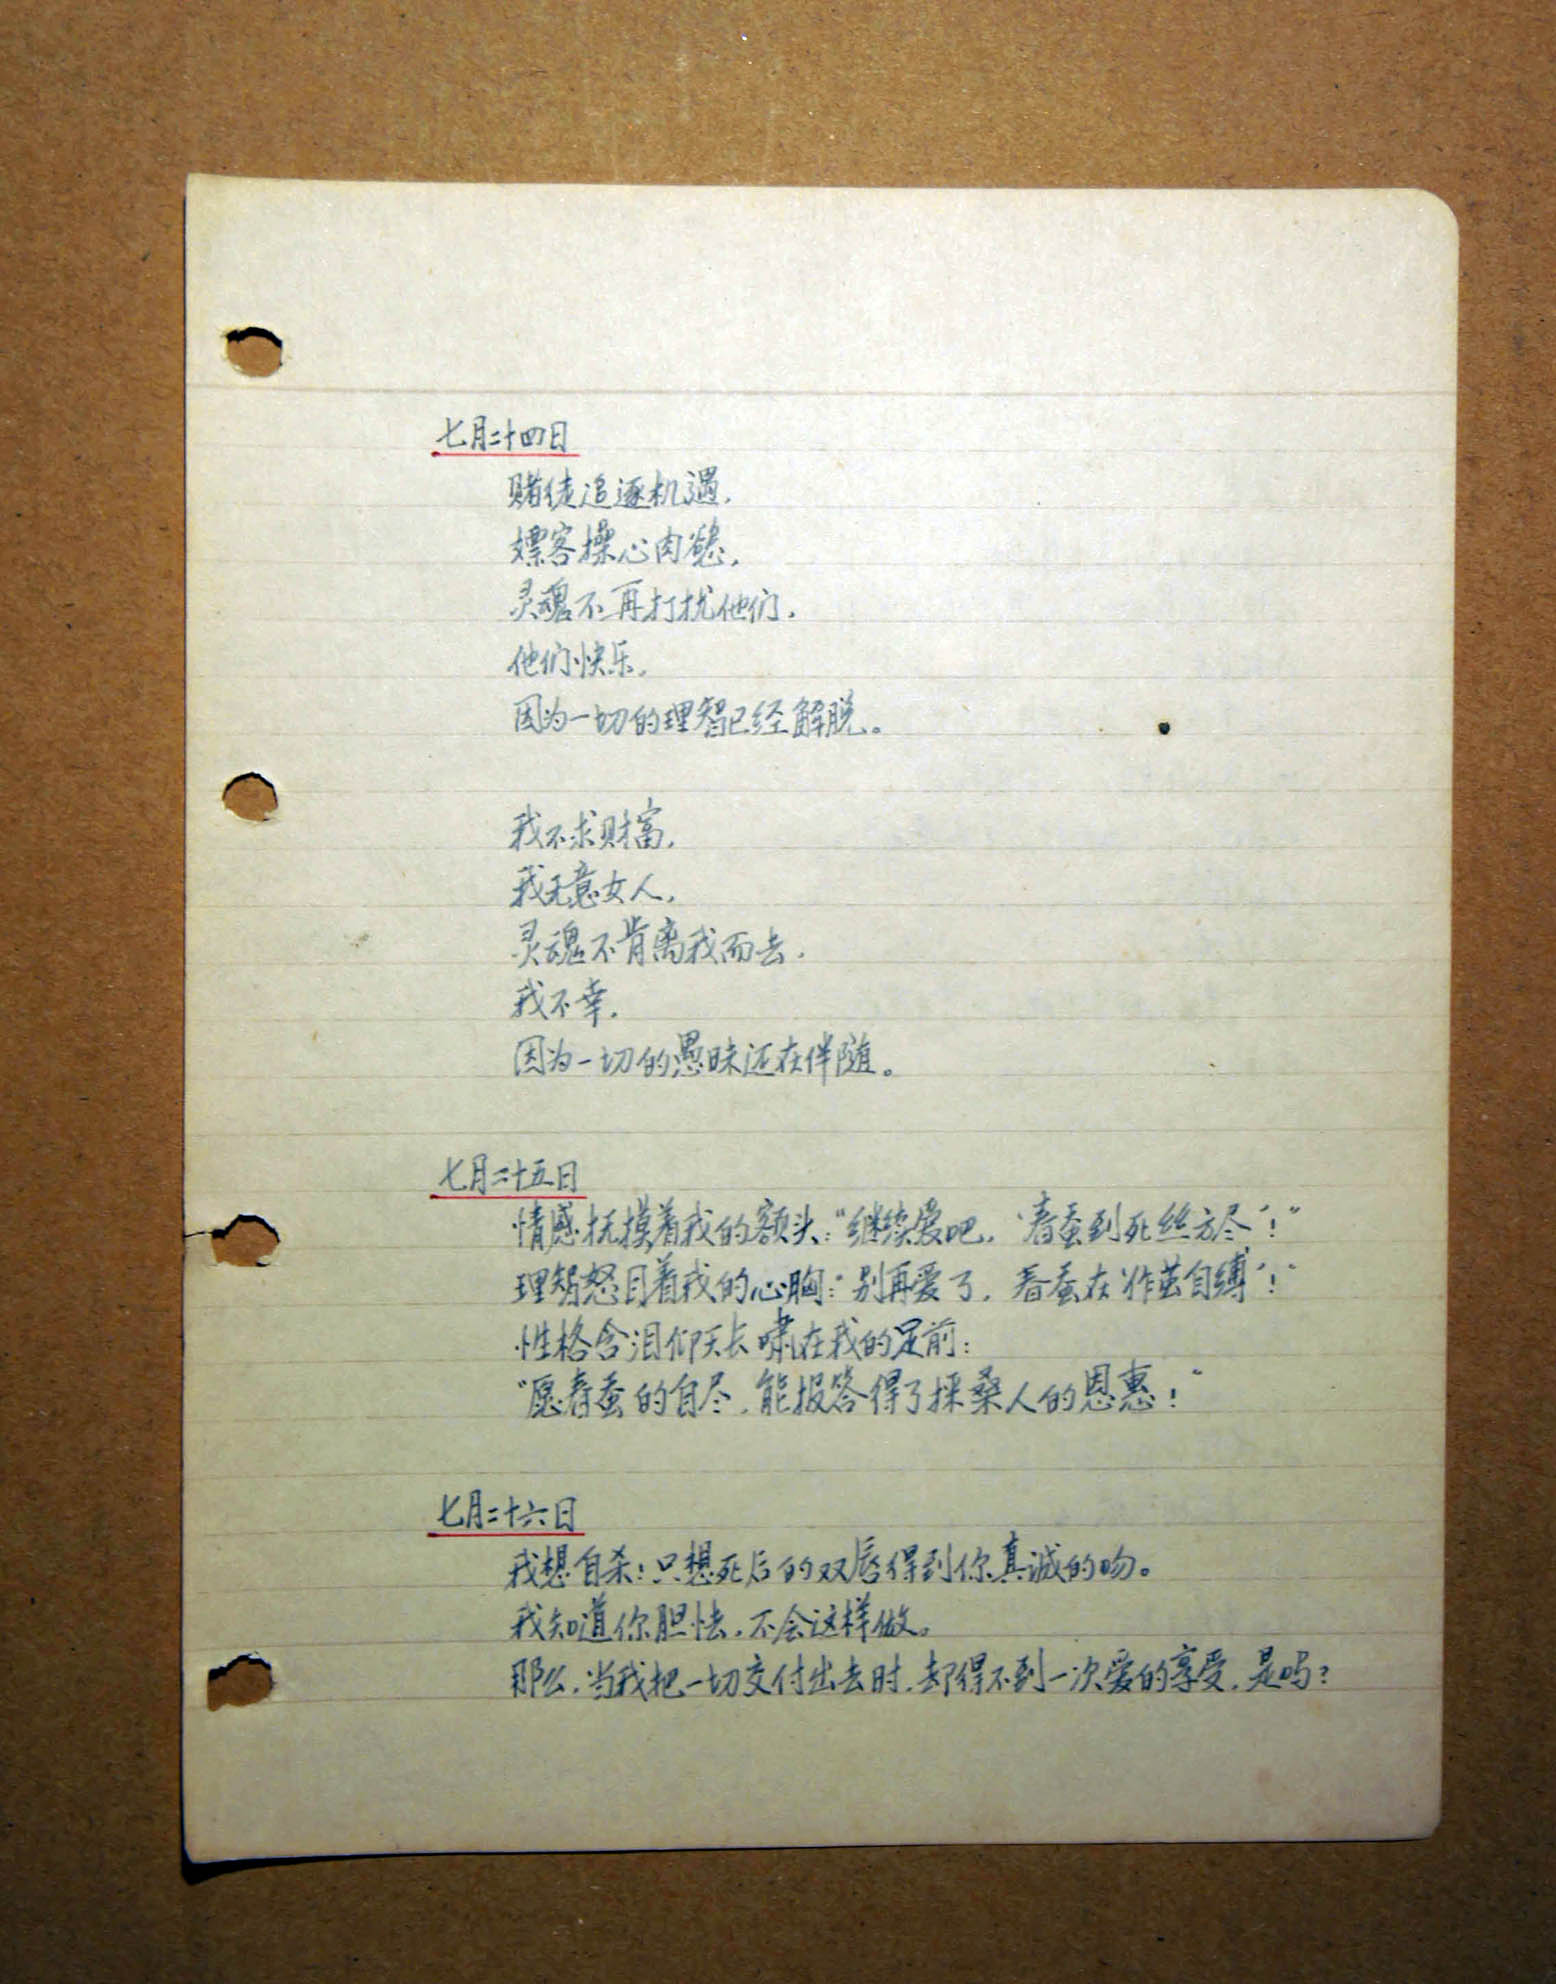 七月二十四日
赌徒追逐机遇，
嫖客操心肉慾，
灵魂不再打扰他们，
他们快乐，
因为一切的理智已经解脱。
我不求财富，
我无意女人，
灵魂不肯离我而去，
我不幸，
因为一切的愚昧还在伴随。
七月二十五日
情感抚摸着我的额头：“继续爱吧，‘春蚕到死丝方尽’！”
理智怒目着我的心胸：“别再爱了，春蚕在‘作茧自缚’！”
性格含泪仰天长啸在我的足前：
“愿春蚕的自尽，能报答得了採桑人的恩惠！”
七月二十六日
我想自杀：只想死后的双唇得到你真诚的吻。
我知道你胆怯，不会这样做。
那么，当我把一切交付出去时，却得不到一次爱的享受，是吗？